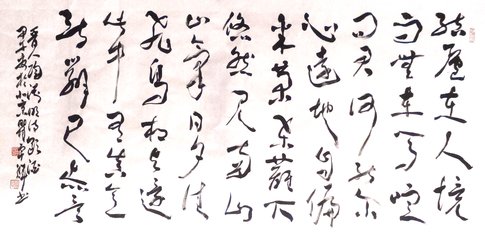 結廬在人境
而無車馬喧
問君何能爾
心遠地自偏
采菊東籬下
悠然見南山
山氣日夕佳
飛鳥相與還
此中有真意
欲辨已忘言
晉人陶淵明詩飲酒
於北京 書